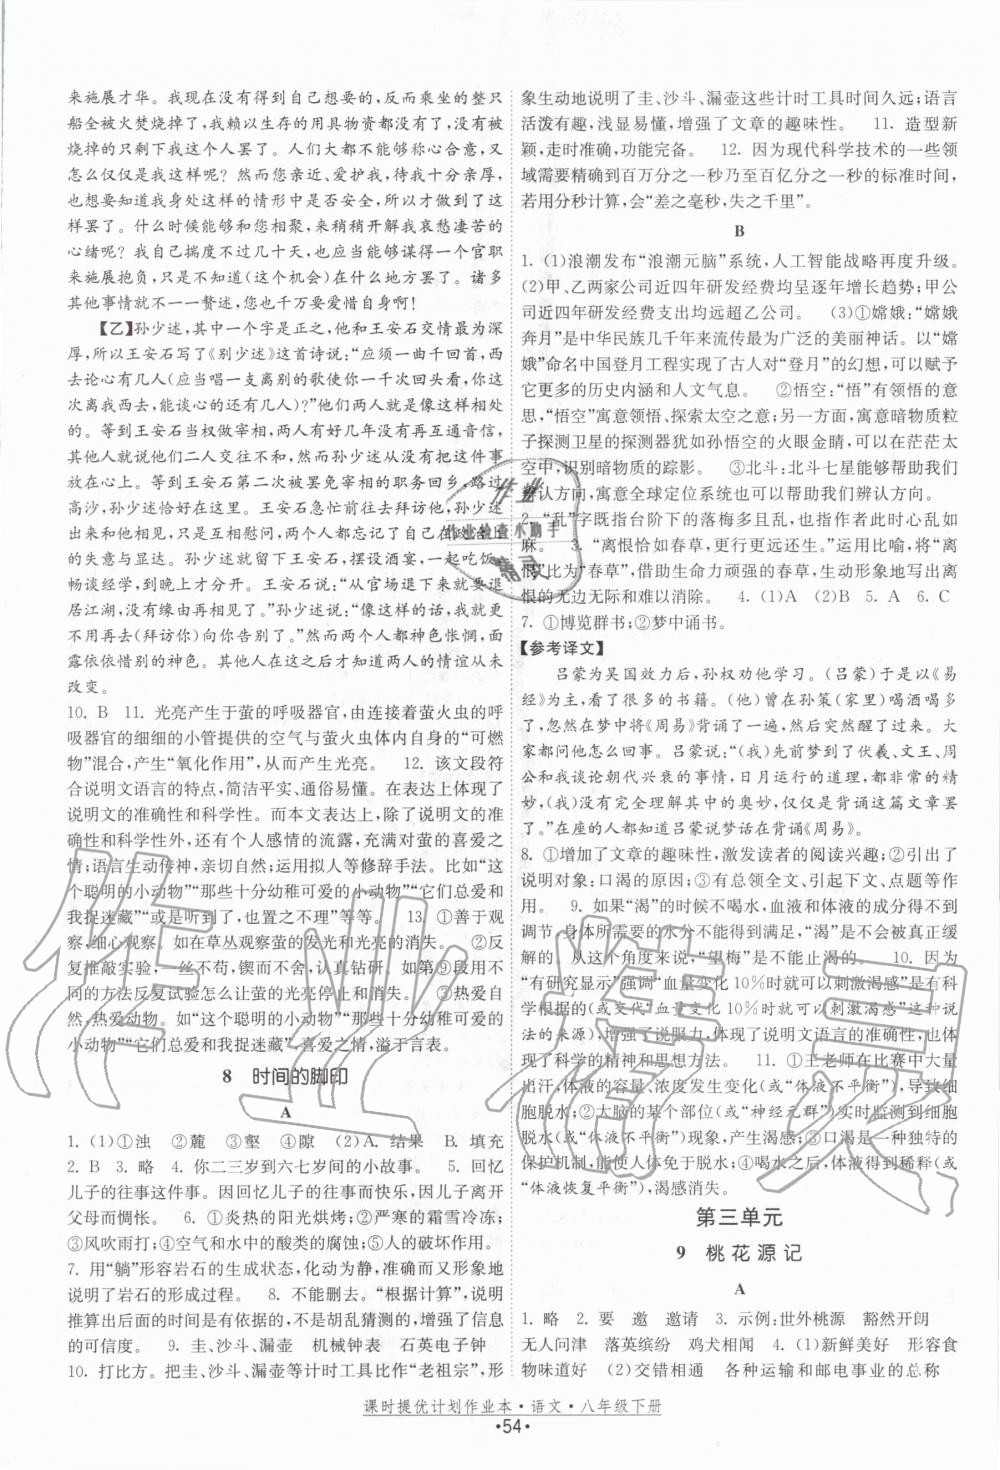 来施展才华。我现在没有得到自己想要的,反而乘坐的整只
船全被火焚烧掉了,我赖以生存的用具物资都没有了,被火
烧掉的只剩下我这个人罢了。人们大都不能够称心合意,又
怎么仅仅是我这样呢?然而您亲近、爱护我,待我十分亲厚,
您想要知道我身处这样的情形中是否安全,所以我写了这些
罢了。什么时候能够和您相聚,来稍稍开导我哀愁凄苦的
心绪呢?我自己揣度不过几十天,也应当能够谋得一个官职
来施展抱负,只是不知道(这个机会)在什么地方罢了。诸多
其他事情就不一一赘述,您也千万要爱惜自身啊!
【乙】孙少述,其中一个字是正之,他和王安石交情最为深
厚,所以王安石写了《别少述》这首诗说:“应须一曲千回首,
西去论心有几人(应当唱一支离别的歌使你一千次回头看,你这
次离我西去,能谈心的还有几人)?”他们两人就是像这样相处
的。等到王安石当权做宰相,两人有好几年没有再互通音信,
其他人怀疑他们二人交往不和,但是孙少述却不把这件事
放在心上。等到王安石第二次被罢免宰相的职务回乡,路过
高沙,孙少述恰好在那里。王安石急忙前往拜访他,孙少述
出来和他相见,只是相互慰问,以及吊念王安石在政治上
的失意与显达。孙少述留下王安石,摆设酒宴,一起吃饭,
畅谈经学,到晚上才分开。王安石说:“从官场退下来就要退
居江湖,没有缘由再相见了。”孙少述说:“像这样的话,我就更
不用再去(拜访你)向你告别了。”然而两人都神色怅惘,面
露依依惜别的神色。人们这才知道两人的情谊从未
改变。
10. B 11. 光亮产生于萤的呼吸器官,由连接着萤火虫的呼
吸器官的细细的小管提供的空气与萤火虫体内自身的“可燃
物”混合,产生“氧化作用”,从而产生光亮。 12. 该文段符
合说明文语言的特点,简洁平实、通俗易懂。在表达上体现了
说明文的准确性和科学性。而本文表达上,除了说明文的准
确性和科学性外,还有个人感情的流露,充满对萤的喜爱之
情;语言生动传神,亲切自然;运用拟人等修辞手法。比如“这
个聪明的小动物”“那些十分幼稚可爱的小动物”“它们总爱和
我捉迷藏”“或是听到了,也置之不理”等等。 13. ①善于观
察,细心观察。如在草丛观察萤的发光和光亮的消失。 ②反
复推敲实验,一丝不苟,锲而不舍,认真钻研。如第⑨段用不
同的方法反复试验怎么让萤的光亮停止和消失。 ③热爱自
然,热爱动物。如“这个聪明的小动物”“那些十分幼稚可爱的
小动物”“它们总爱和我捉迷藏”,喜爱之情,溢于言表。
8 时间的脚印
A
1. (1)①浊 ②麓 ③壑 ④隙 (2)A. 结果 B. 填充
2. B 3. 略 4. 你二三岁到六七岁间的小故事。 5. 回忆
儿子的往事这件事。因回忆儿子的往事而快乐,因儿子离开
父母而惆怅。 6. ①炎热的阳光烘烤;②严寒的霜雪冷冻;
③风吹雨打;④空气和水中的酸类的腐蚀;⑤人类的破坏等。
7. 用“躺”形容岩石的生成状态,化动为静,准确、形象地说明
了岩石的形成过程。 8. 不能删去。“根据计算”,说明
推算出后面的时间是有依据的,不是胡乱猜测的,增强了信息
的可信度。 9. 圭、沙斗、漏壶 机械钟表 石英电子钟
10. 打比方。把圭、沙斗、漏壶等计时工具比作“老祖宗”,形
象生动地说明了圭、沙斗、漏壶这些计时工具时间久远;语言
活泼有趣,浅显易懂,增强了文章的趣味性。 11. 造型新
颖,走时准确,功能完备。 12. 因为现代科学技术的一些领
域需要精确到百万分之一秒乃至百亿分之一秒的标准时间,
若用分秒计算,会“差之毫秒,失之千里”。
B
1. (1)浪潮发布“浪潮元脑”系统,人工智能战略再度升级。
(2)甲、乙两家公司近四年研发经费均呈逐年增长趋势;甲公
司近四年研发经费支出均远超乙公司。 (3)①嫦娥:“嫦娥
奔月”是中华民族几千年来流传最为广泛的美丽神话。以“嫦
娥”命名中国登月工程实现了古人对“登月”的幻想,可以赋予
它更多的历史内涵和人文气息。 ②悟空:“悟”有领悟的意
思,“悟空”寓意领悟、探索太空之意;另一方面,寓意暗物质粒
子探测卫星的探测器犹如孙悟空的火眼金睛,可以在茫茫太
空中,识别暗物质的踪影。 ③北斗:北斗七星能够帮助我们
辨认方向,寓意全球定位系统也可以帮助我们辨认方向。
2. “乱”字既指台阶下的落梅多且乱,也指作者此时心乱如
麻。 3. “离恨恰如春草,更行更远还生。”运用比喻,将“离
恨”比为“春草”,借助生命力顽强的春草,生动形象地写出离
恨的无边无际和难以消除。 4. (1)A (2)B 5. A 6. C
7. ①博览群书;②梦中诵书。
【参考译文】
吕蒙为吴国效力后,孙权劝他学习。(吕蒙)于是以《易
经》为主,看了很多的书籍。(他)曾在孙策(家里)喝酒喝醉
了,忽然在梦中将《周易》背诵了一遍,然后突然醒了过来。大
家都问他怎么回事。吕蒙说:“(我)先前梦到了伏羲、文王、周
公和我谈论朝代兴衰的事情,日月运行的道理,都非常的精
妙,(我)没有了解其中的奥妙,仅仅只是背诵这篇文章罢
了。”在座的人都知道吕蒙说梦话在背诵《周易》。
8. ①增加了文章的趣味性,激发读者的阅读兴趣;②引出了
说明对象:口渴的原因;③有总领全文、引起下文、点题等作
用。 9. 如果“渴”的时候不喝水,血液和体液的成分得不到
调节,身体所需要的水分不能得到满足,“渴”是不会真正缓
解的。从这个角度来说,“望梅”是不能止渴的。 10. 因为
“有研究显示”强调“血量变化10%时就可以刺激渴感”是有科
学根据的(或交代“血量变化10%时就可以刺激渴感”这种说
法的来源),增强了说服力,体现了说明文语言的准确性,也体
现了科学的精神和思想方法。 11. ①王老师在比赛中大量
出汗,体液的容量、浓度发生变化(或“体液不平衡”),导致了
细胞脱水;②大脑的某个部位(或“神经元群”)实时监测到细胞
脱水(或“体液不平衡”)现象,产生渴感;③口渴是一种独特的
保护机制,能使人体免于脱水;④喝水之后,体液得到稀释(或
“体液恢复平衡”),渴感消失。
第三单元
9 桃花源记
A
1. 略 2. 要 邀 邀请 3. 示例:世外桃源 豁然开朗
无人问津 落英缤纷 鸡犬相闻 4. (1)新鲜美好 形容食
物味道好 (2)交错相通 各种运输和邮电事业的总称
课时提优计划作业本·语文·八年级下册
·54·
作业
作业检查小助手
精灵
作业精灵